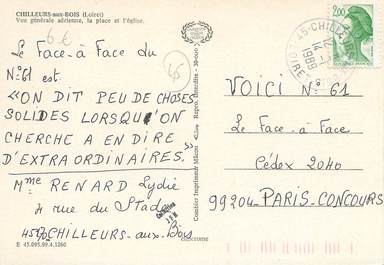 CHILLEURS-aux-BOIS (Loiret)
Vue générale aérienne, la place et l'église.
Le Face-à Face du
N°61 est.
"ON DIT PEU DE CHOSES
SOLIDES LORSQU'ON
CHERCHE A EN DIRE
D'EXTRAORDINAIRES."
Mme RENARD Lydie
4 rue du Stade
CHILLEURS-aux-Bois
E 45.095.99.4.1260
Combier Imprimeur Mâcon
45
2,00
45-CHILLEURS
14
1989
LOIRET
VOICI N° 61
Le Face-à Face
Cédex 2040
99204-PARIS-CONCOURS